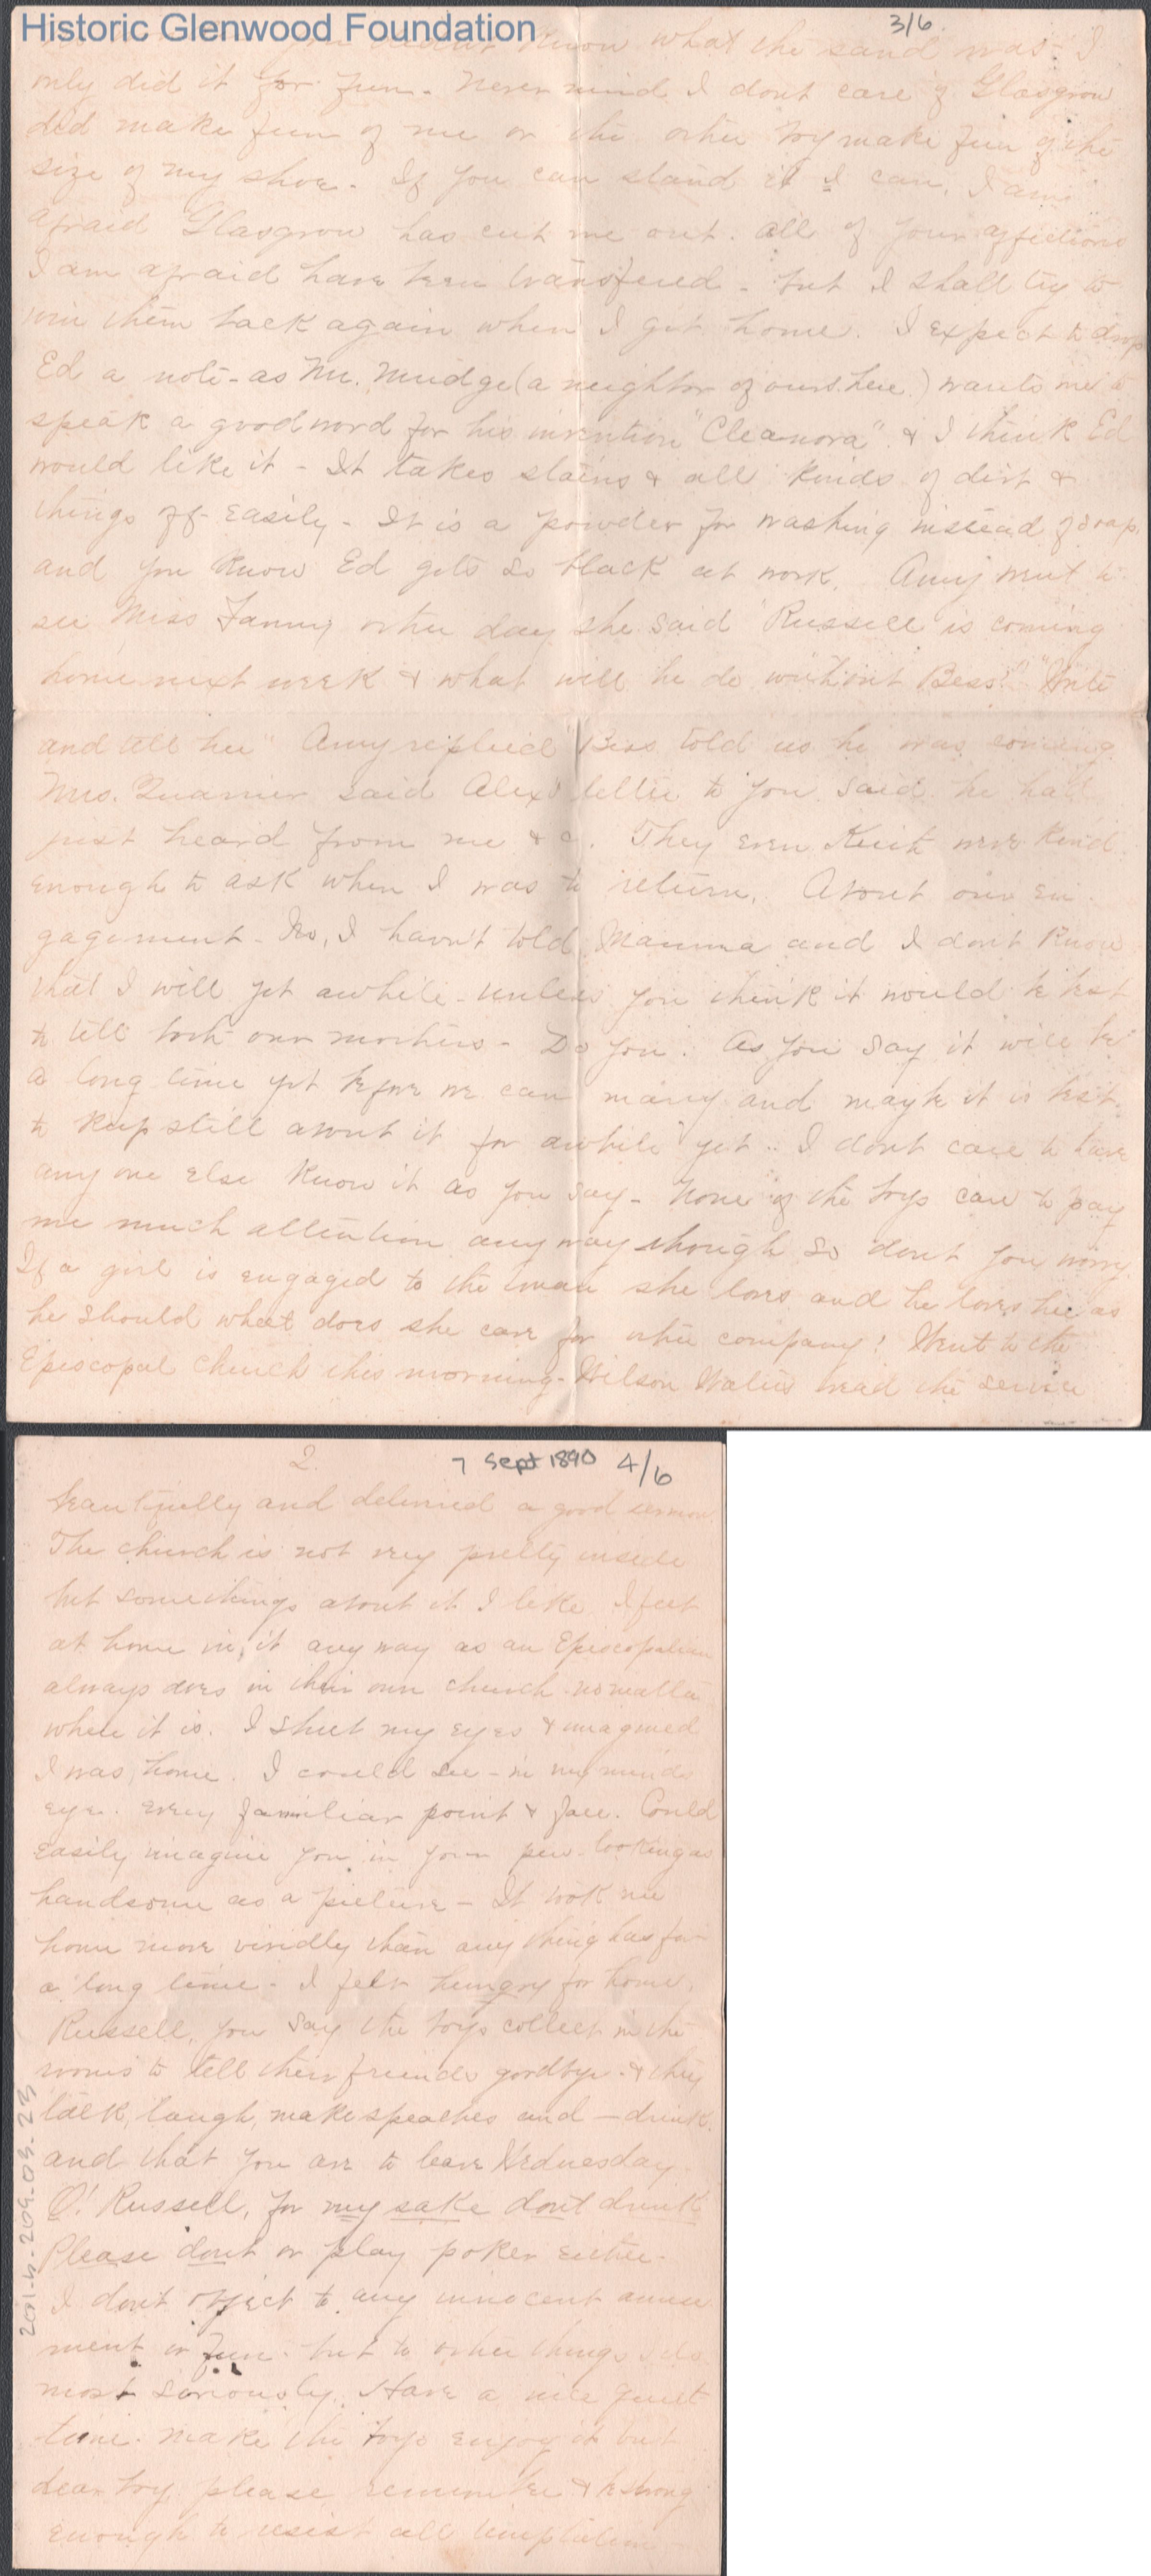 Historic Glenwood Foundation
3/6
you didn't know what the sand was. I
only did it for fun. Never mind I dont care if Glasgrow
did make fun of me or the other boy make fun of the
size of my shoe. If you can stand it I can. I am
afraid Glasgrow has cut me out. All of your affections
I am afraid have been transfered - but I shall try to
win them back again when I get home. I expect to drop
Ed a note - as Mr. Mudge (a neighbor of ours here) wants me to
speak a good word for his invention "Cleanora" & I think Ed
would like it - It takes stains & all kinds of dirt &
things off easily - It is a powder for washing instead of soap.
and you know Ed gets so black at work. Amy went to
see Miss Fanny other day she said "Russell is coming
home next week & what will he do without Bess?" "Write
and tell her" Amy replied "Bess told us he was coming.
Mrs. Quarrier said Alex's letter to you said he had
just heard from me & c. They even were kind
enough to ask when I was to return. About our en-
gagement - No, I havn't told Mamma and I dont know
that I will yet awhile - unless you think it would be best
to tell both our mothers - Do you. As you say it will be
a long time yet before we can marry and maybe it is best
to keep still about it for awhile yet. I dont care to have
any one else know it as you say - None of the boys care to pay
me much attention any way though so dont you worry
If a girl is engaged to the man she loves and he loves her as
he should what does she care for other company! Went to the
Episcopal Church this morning - Wilson Walters read the service
2.
7 Sept 1890 4/6
beautifully and delivered a good sermon.
The church is not very pretty inside
but somethings about it I like I feel
at home in it any way as an Episcopalian
always does in their own church no matter
where it is. I shut my eyes & imagined
I was home. I could see - in my minds
eye. every familiar point & face. Could
easily imagine you in your pew looking as
handsome as a picture - It took me
home more vividly than any thing has for
a long time - I felt hungry for home.
Russell, you say the boys collect in the
rooms to tell their friends goodbye & they
talk, laugh, make speaches and - drink.
and that you are to leave Wednesday.
O! Russell, for my sake dont drink
Please dont or play poker either.
I don't object to any innocent amuse
ment or fun - but to other things I do
most seriously. Have a nice quiet
time. make the boys enjoy it but
dear boy please remember & be strong
enough to resist all temptation
2011-4-209-03-23